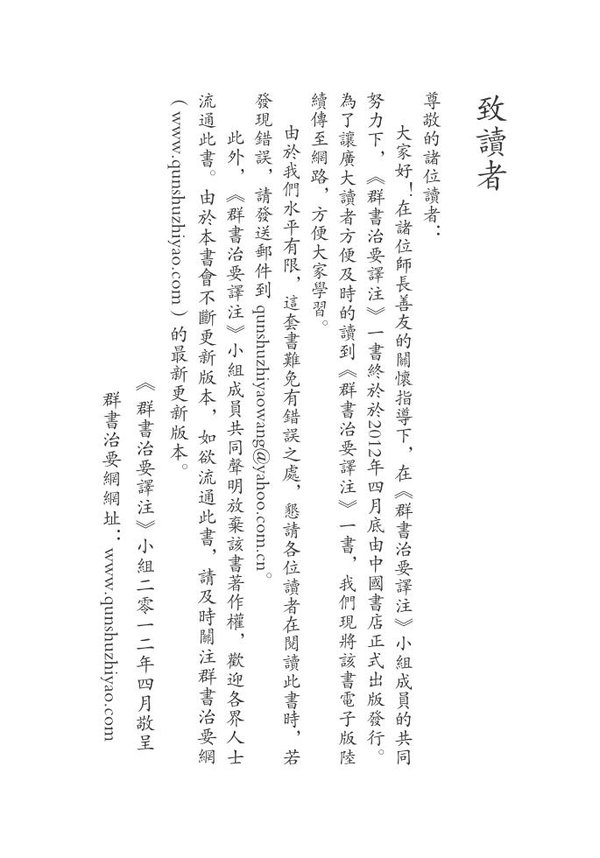 致讀者
尊敬的諸位讀者：
大家好！在諸位師長善友的關懷指導下，在《群書治要譯注》小組成員的共同
努力下，《群書治要譯注》一書終於於2012年四月底由中國書店正式出版發行。
為了讓廣大讀者方便及時的讀到《群書治要譯注》一書，我們現將該書電子版陸
續傳至網路，方便大家學習。
由於我們水平有限，這套書難免有錯誤之處，懇請各位讀者在閱讀此書時，若
發現錯誤，請發送郵件到 qunshuzhiyaowang@yahoo.com.cn。
此外，《群書治要譯注》小組成員共同聲明放棄該書著作權，歡迎各界人士
流通此書。由於本書會不斷更新版本，如欲流通此書，請及時關注群書治要網
（www.qunshuzhiyao.com）的最新更新版本。
《群書治要譯注》小組二零一二年四月敬呈
群書治要網網址：www.qunshuzhiyao.com